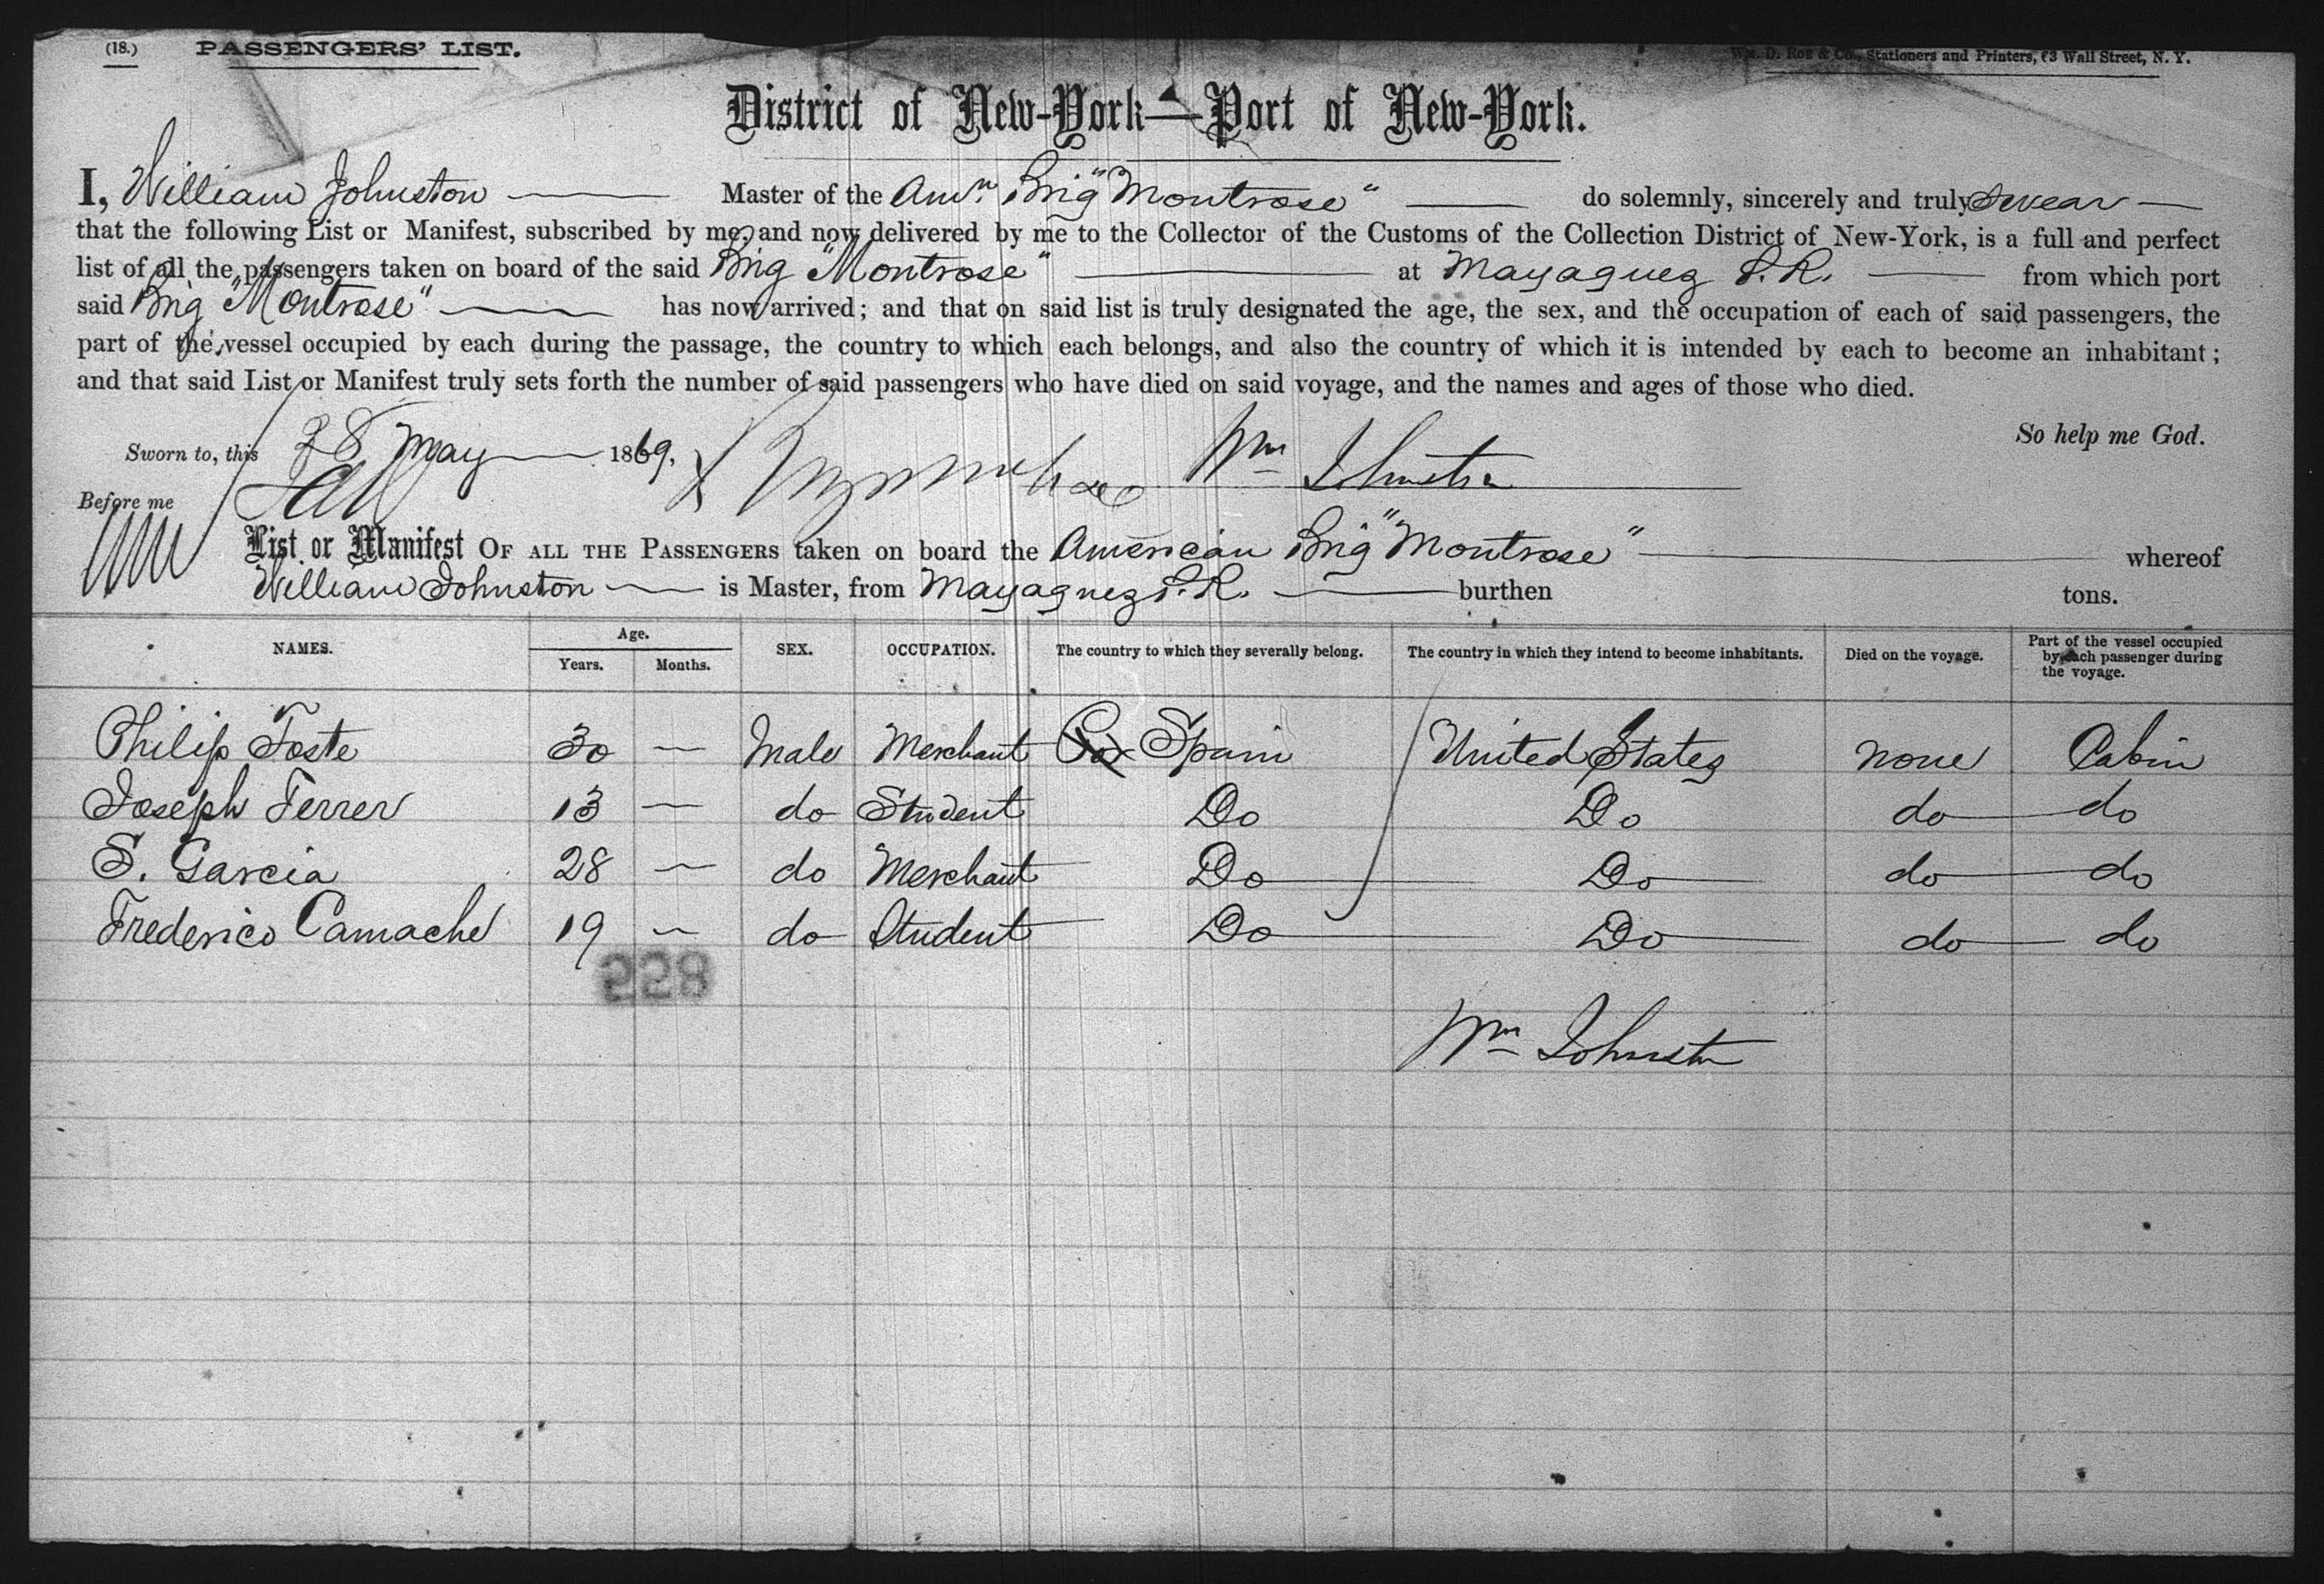 (18.) PASSENGERS' LIST. Wm. D. Roe & Co., Stationers and Printers, 63 Wall Street, N. Y.
District of New-York—Port of New-York.
I, William Johnston Master of the Amn. Brig "Montrose" do solemnly, sincerely and truly swear
that the following List or Manifest, subscribed by me, and now delivered by me to the Collector of the Customs of the Collection District of New-York, is a full and perfect
list of all the passengers taken on board of the said Brig "Montrose" at Mayaguez P.R. from which port
said Brig "Montrose" has now arrived; and that on said list is truly designated the age, the sex, and the occupation of each of said passengers, the
part of the vessel occupied by each during the passage, the country to which each belongs, and also the country of which it is intended by each to become an inhabitant;
and that said List or Manifest truly sets forth the number of said passengers who have died on said voyage, and the names and ages of those who died.
So help me God.
Sworn to, this 28 May 1869, Wm Johnston
Before me
List or Manifest OF ALL THE PASSENGERS taken on board the American Brig "Montrose" whereof
William Johnston is Master, from Mayaguez P.R. burthen tons.
NAMES. Age. Years. Months. SEX. OCCUPATION. The country to which they severally belong. The country in which they intend to become inhabitants. Died on the voyage. Part of the vessel occupied by each passenger during the voyage.
Philip Toste 30 — Male Merchant Spain United States none Cabin
Joseph Ferrer 13 — do Student Do Do do do
S. Garcia 28 — do Merchant Do Do do do
Frederico Camache 19 — do Student Do Do do do
Wm Johnston